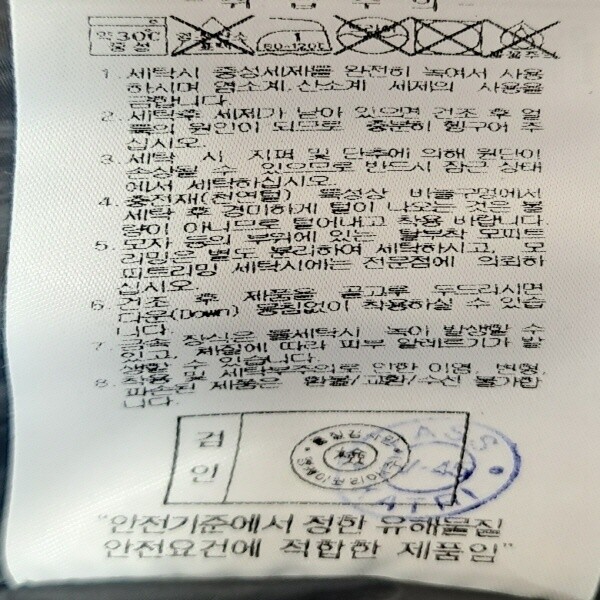 취 급 주 의
약30℃
중성
60-120℃
1. 세탁시 중성세제를 완전히 녹여서 사용
하시며 염소계.산소계 세제의 사용을
금합니다.
2. 세탁후 세제가 남아 있으면 건조 후 얼
룩의 원인이 되므로 충분히 헹구어 주
십시오.
3. 세탁 시 지퍼 및 단추에 의해 원단이
손상될 수 있으므로 반드시 잠근 상태
에서 세탁하십시오.
4. 충전재(천연털) 특성상 바늘구멍에서
세탁 후 경미하게 털이 나오는 것은 불
량이 아니므로 털어내고 착용 바랍니다.
5. 모자 등의 부위에 있는 탈부착 모피트
리밍은 별도 분리하여 세탁하시고, 모
피트리밍 세탁시에는 전문점에 의뢰하
십시오.
6. 건조 후 제품을 골고루 두드리시면
다운(Down) 뭉침없이 착용하실 수 있습
니다.
7. 금속 장식은 물세탁시 녹이 발생할 수
있고, 체질에 따라 피부 알레르기가 발
생할 수 있습니다.
8. 착용 및 세탁부주의로 인한 이염, 변형,
파손된 제품은 환불/교환/수선 불가합
니다.
검
인
KATRI
"안전기준에서 정한 유해물질
안전요건에 적합한 제품임"